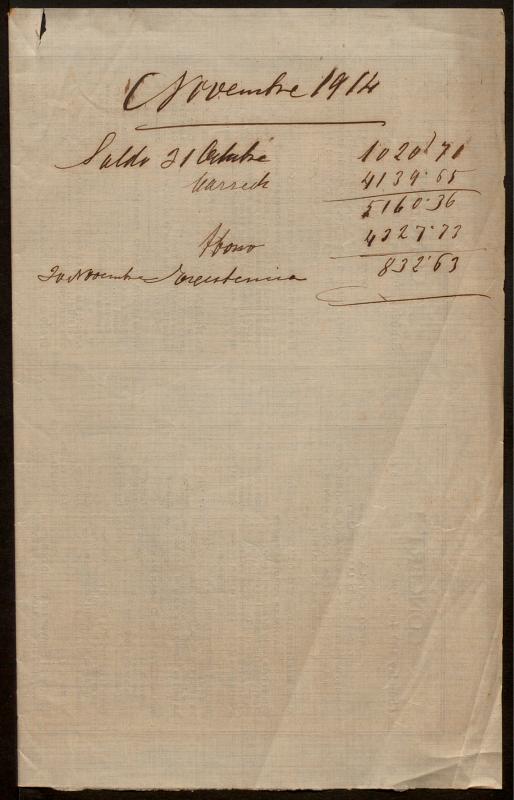 Novembre 1914
Saldo 31 Octubre 1020'71
Carrech 4139.65
5160.36
Abono 4327.73
30 Novembre Existencia 832.63